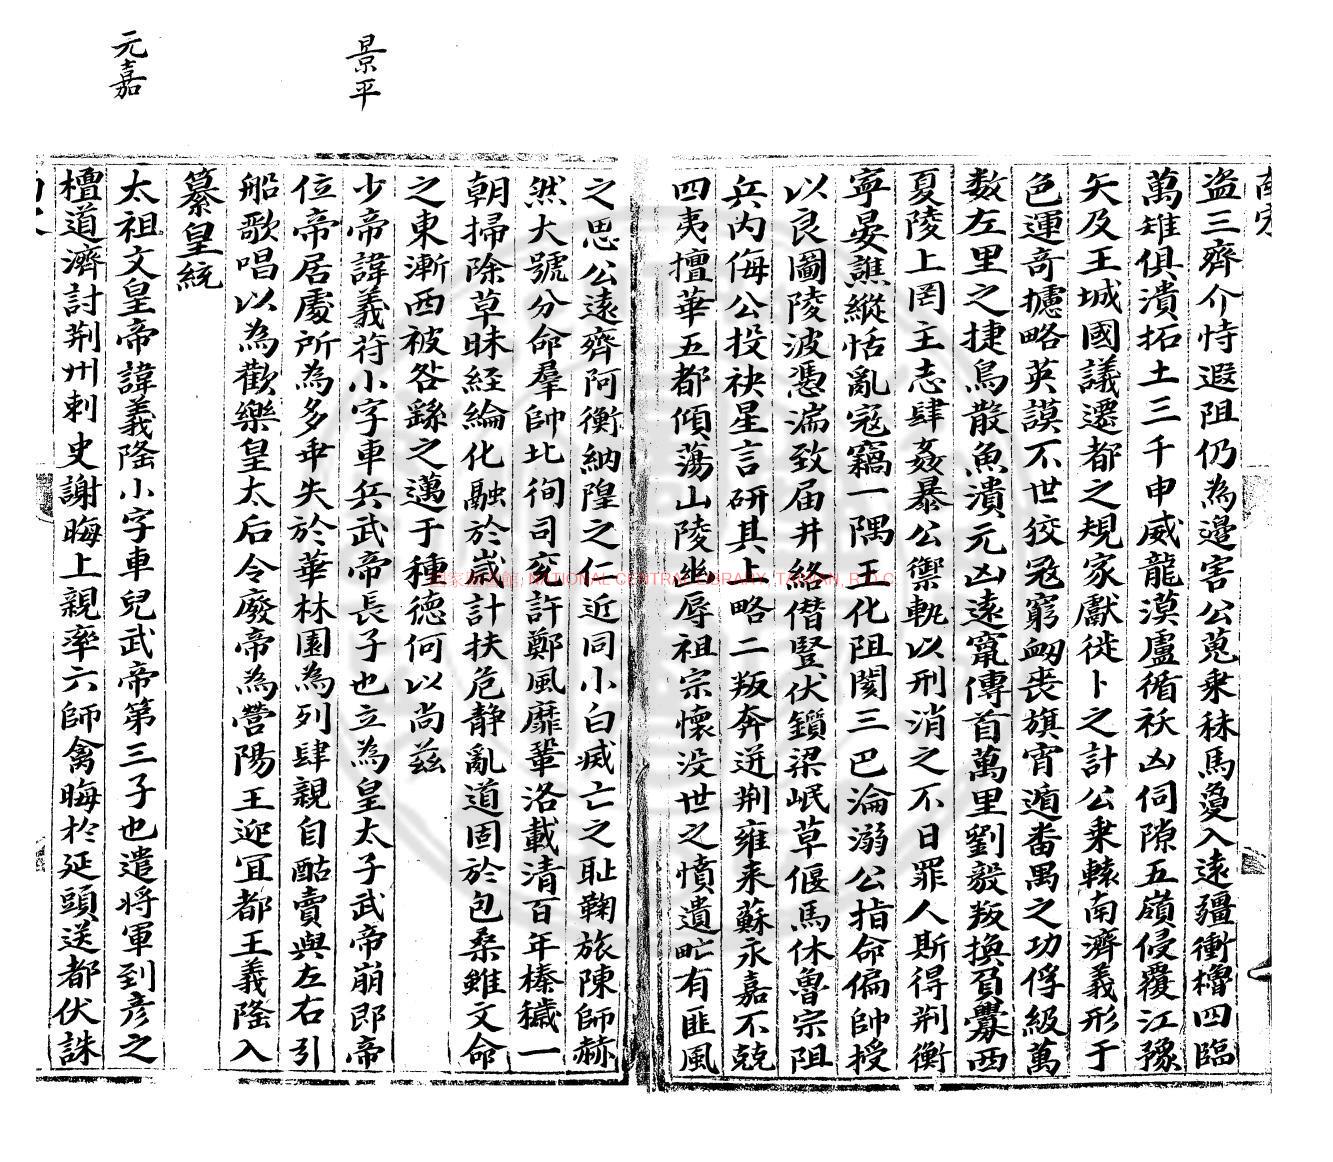 景平
元嘉
盗三齊介恃遐阻仍為邊害公蒐乗秣馬敻入遠疆衝櫓四臨
萬雉俱潰拓土三千申威龍漠盧循袄凶伺隙五嶺侵覆江豫
矢及王城國議遷都之規家獻徙卜之計公乗轅南濟義形于
色運奇攄略英謨不世狡冦窮衂喪旗宵遁畨禺之功俘級萬
数左里之捷鳥散魚潰元凶遠竄傳首萬里劉毅叛換負釁西
夏陵上罔主志肆姦暴公禦軌以刑消之不日罪人斯得荆衡
寧晏譙縱恬亂冦竊一隅王化阻閡三巴淪溺公指命偏帥授
以良圖陵波憑湍致届井絡僭豎伏鑕梁岷草偃馬休魯宗阻
兵内侮公投袂星言研其上略二叛奔迸荆雍来蘇永嘉不兢
四夷擅華五都傾蕩山陵幽辱祖宗懷没世之憤遺甿有匪風
之思公遠齊阿衡納隍之仁近同小白滅亡之耻鞠旅陳師赫
然大號分命羣帥北徇司兖許鄭風靡鞏洛載清百年榛穢一
朝掃除草昧経綸化融於嵗計扶危静亂道固於包桑雖文命
之東漸西被咎繇之邁于種德何以尚兹
少帝諱義苻小字車兵武帝長子也立為皇太子武帝崩即帝
位帝居處所為多乖失於華林園為列肆親自酤賣與左右引
船歌唱以為歡樂皇太后令廢帝為營陽王迎宜都王義隆入
纂皇統
太祖文皇帝諱義隆小字車兒武帝第三子也遣将軍到彦之
檀道濟討荆州刺史謝晦上親率六師禽晦扵延頭送都伏誅
國家圖書館, NATIONAL CENTRAL LIBRARY, TAIWAN, R.O.C.